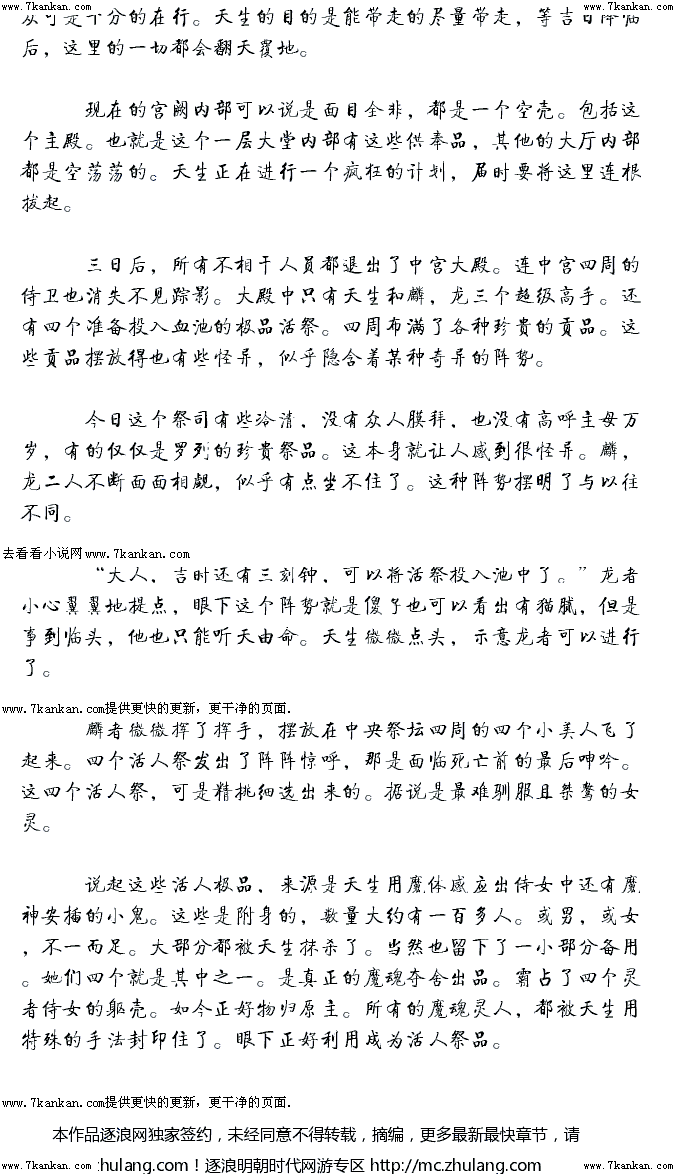 www.7kankan.com www.7kankan.com
众可是十分的在行。天生的目的是能带走的尽量带走，等吉日降临
后，这里的一切都会翻天覆地。
现在的宫阙内部可以说是面目全非，都是一个空壳。包括这
个主殿。也就是这个一层大堂内部有这些供奉品，其他的大厅内部
都是空荡荡的。天生正在进行一个疯狂的计划，届时要将这里连根
拔起。
三日后，所有不相干人员都退出了中宫大殿。连中宫四周的
侍卫也消失不见踪影。大殿中只有天生和麟，龙三个超级高手。还
有四个准备投入血池的极品活祭。四周布满了各种珍贵的贡品。这
些贡品摆放得也有些怪异，似乎隐含着某种奇异的阵势。
今日这个祭司有些冷清，没有众人膜拜，也没有高呼主母万
岁，有的仅仅是罗列的珍贵祭品。这本身就让人感到很怪异。麟，
龙二人不断面面相觑，似乎有点坐不住了。这种阵势摆明了与以往
不同。
去看看小说网www.7kankan.com
“大人，吉时还有三刻钟，可以将活祭投入池中了。”龙者
小心翼翼地提点，眼下这个阵势就是傻子也可以看出有猫腻，但是
事到临头，他也只能听天由命。天生微微点头，示意龙者可以进行
了。
www.7kankan.com提供更快的更新，更干净的页面.
麟者微微挥了挥手，摆放在中央祭坛四周的四个小美人飞了
起来。四个活人祭发出了阵阵惊呼，那是面临死亡前的最后呻吟。
这四个活人祭，可是精挑细选出来的。据说是最难驯服且桀骜的女
灵。
说起这些活人极品，来源是天生用魔体感应出侍女中还有魔
神安插的小鬼。这些是附身的，数量大约有一百多人。或男，或女
，不一而足。大部分都被天生抹杀了。当然也留下了一小部分备用
。她们四个就是其中之一。是真正的魔魂夺舍出品。霸占了四个灵
者侍女的躯壳。如今正好物归原主。所有的魔魂灵人，都被天生用
特殊的手法封印住了。眼下正好利用成为活人祭品。
www.7kankan.com提供更快的更新，更干净的页面.
本作品逐浪网独家签约，未经同意不得转载，摘编，更多最新最快章节，请
www.7kankan.com zhulang.com！逐浪明朝时代网游专区 http://mc.zhulang.com www.7kankan.com